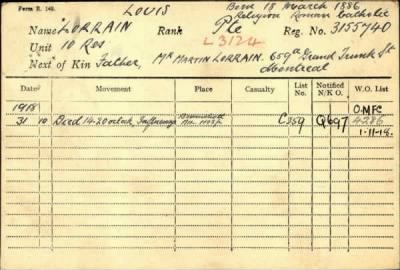 Form R. 149.
LOUIS
Born 18 March 1886
Religion Roman Catholic
Name LORRAIN Rank Pte Reg. No. 3155740
Unit 10 Res L3124
Next of Kin Father, Mr MARTIN LORRAIN. 659a Grand Trunk St
Montreal
Date Movement Place Casualty List No. Notified N/K O. W.O. List
1918 OMFC
31 10 Died 14-20 o'clock, Influenza C359 Q697 4286
1-11-18.